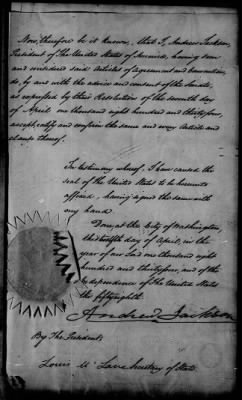 Now, therefore be it known, that I, Andrew Jackson,
President of The United States of America, having seen
and considered said articles of agreement and convention
do, by and with the advice and consent of the Senate,
as expressed by their Resolution of the seventh day
of April one thousand eight hundred and thirty four,
accept, ratify and confirm the same and every article and
clause thereof.
In testimony whereof, I have caused the
seal of the United States to be hereunto
affixed, having signed the same with
my hand.
Done at the City of Washington,
the twelfth day of April, in the
year of our Lord one thousand eight
hundred and thirty four, and of the
Independence of the United States
the fifty eighth.
Andrew Jackson
By The President:
Louis McLane Secretary of State